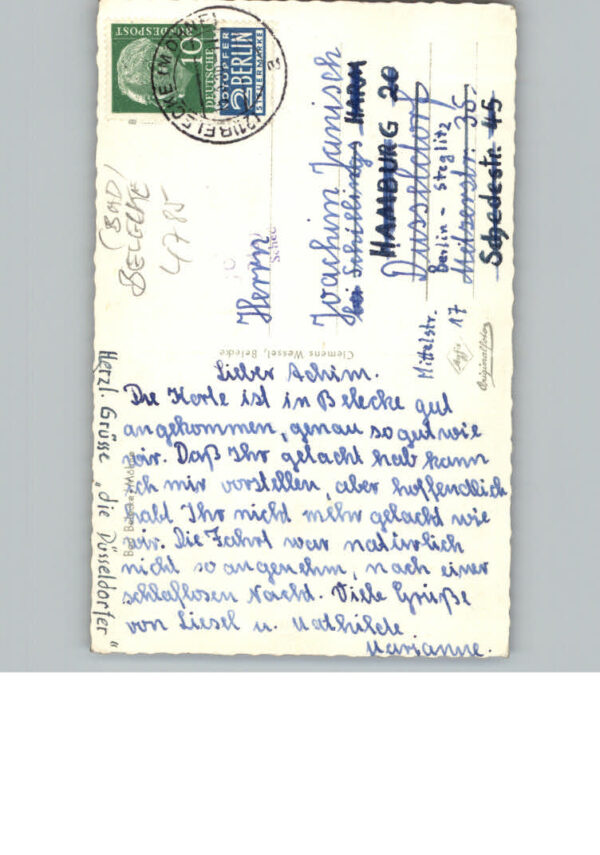 DEUTSCHE BUNDESPOST
10
2 NOTOPFER
BERLIN
STEUERMARKE
(21) BELECKE (MÖHNE)
(BAD)
BELECKE
4785
Herrn
Joachim Janisch
bei Schillings HARM
HAMBURG 20
Düsseldorf
Berlin - Steglitz
Schedestr. 45
Mittelstr. 17
Clemens Wessel, Belecke
Agfa
Originalfoto
Lieber Achim.
Die Karte ist in Belecke gut
angekommen, genau so gut wie
wir. Daß Ihr gelacht hab kann
ich mir vorstellen, aber hoffendlich
habt Ihr nicht mehr gelacht wie
wir. Die Fahrt war natürlich
nicht so angenehm, nach einer
schlaflosen Nacht. Viele Grüße
von Liesel u. Mathilde
Marianne.
Herzl. Grüsse „die Düsseldorfer"